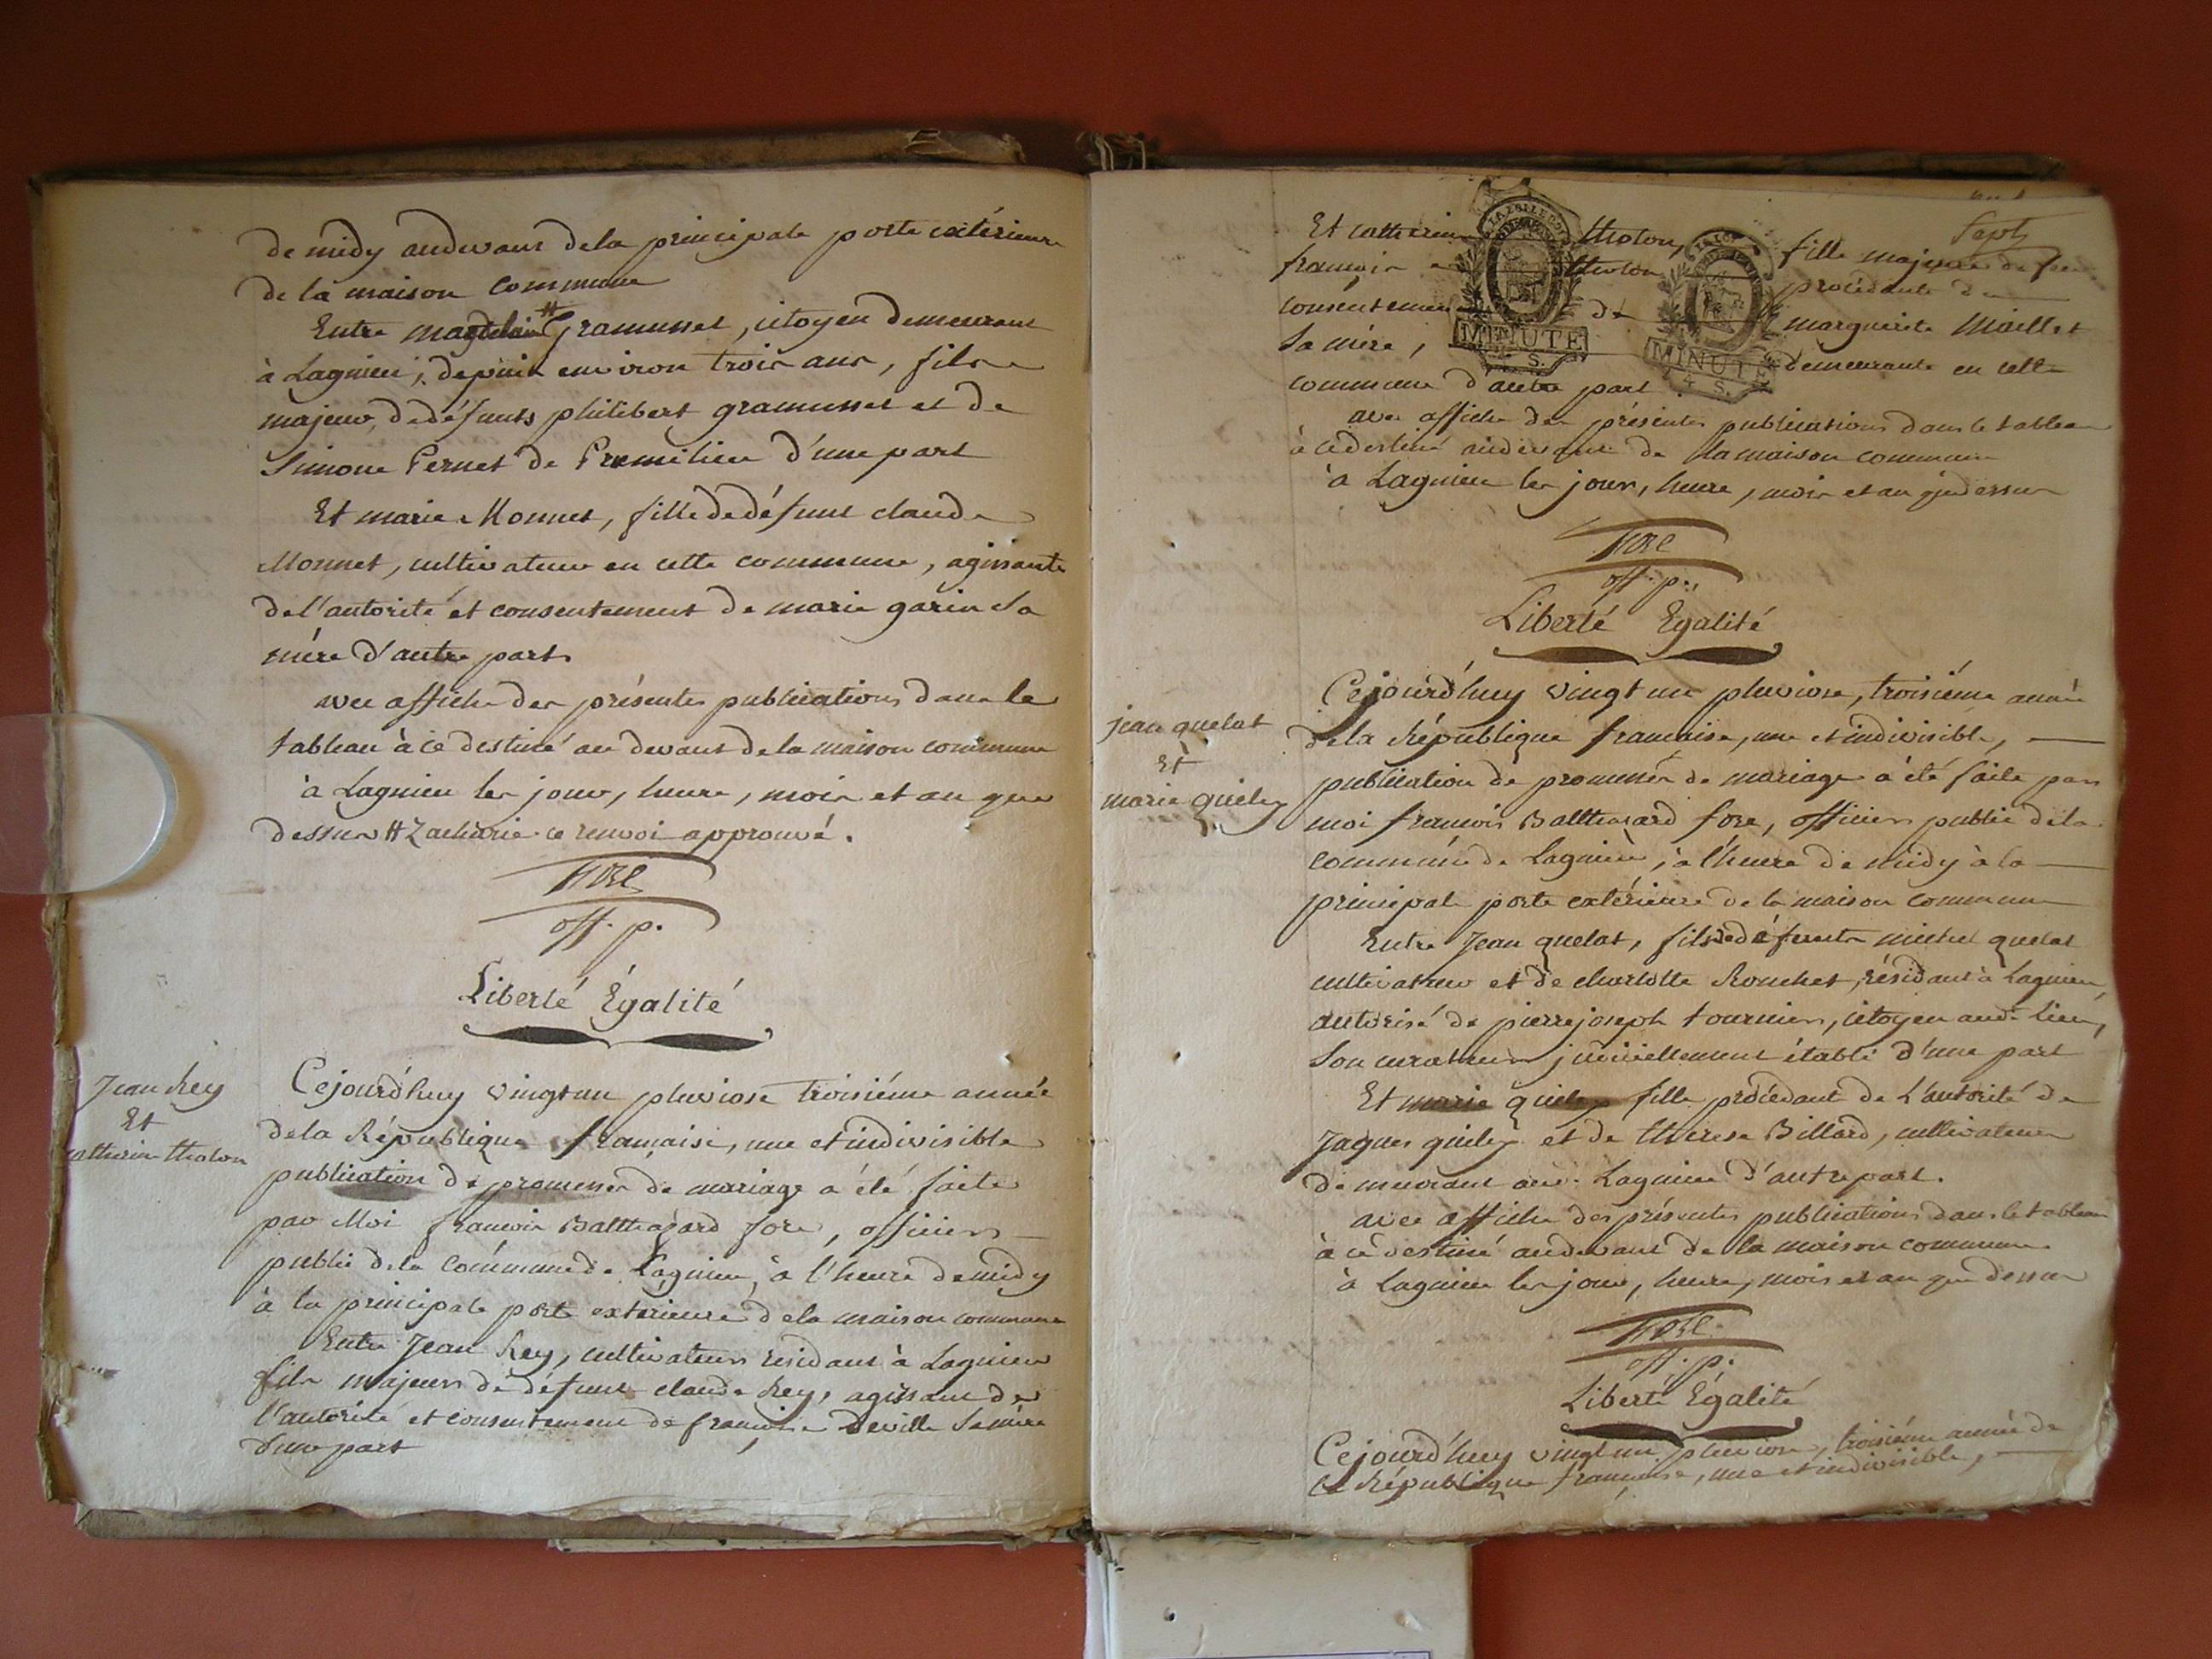 de midy audevant dela principale porte extérieure
de la maison commune
Entre magdelain # Gramusset, citoyen demeurant
à Lagnieu, depuis environ trois ans, fils
majeur, dedéfunts philibert gramusset et de
Simone Pernet de Premilieu d'une part
Et marie Monnet, fille dedéfunt claude
Monnet, cultivateur en cette commune, agissante
del'autorité et consentement de marie garin Sa
mère d'autre part
avec affiche des présentes publications dans le
tableau à ce destiné au devant de la maison commune
à Lagnieu les jour, heure, mois et an que
dessus # Zacharie ce renvoi approuvé.
fore
off. p.
Liberté Égalité
Jean Rey
Et
catherine tholon
Cejourd'huy vingt un pluviose troisiéme année
dela République française, une et indivisible
publication de promesses de mariage a été faite
par Moi françois Balthazard fore, officier
public dela commune de Lagnieu, à l'heure demidy
à la principale porte exterieure dela maison commune
Entre Jean Rey, cultivateur résidant à Lagnieu
fils majeur de défunt claude Rey, agissant de
l'autorité et consentement de françoise Deville Samère
d'une part
Sept
Et catherine tholon, fille majeure de feu
françois tholon procédante de
consentement de marguerite Maillet
Sa mère, demeurante en cette
commune d'autre part
MINUTE
S.
MINUTE
4 S.
avec affiche des présentes publications dans le tableau
à cedestiné audevant de la maison commune
à Lagnieu les jour, heure, mois et an quedessus
fore
off. p.
Liberté Égalité
jean quelat
Et
marie quiley
Cejourd'huy vingt un pluviose, troisiéme année
dela République française, une et indivisible,
publication de promesses de mariage a été faite par
moi françois Balthazard fore, officier public dela
commune de Lagnieu, à l'heure de midy à la
principale porte extérieure de la maison commune
Entre Jean quelat, fils dedéfunts michel quelat
cultivateur et de charlotte Ronchet, résidant à Lagnieu,
autorisé de pierre joseph tournier, citoyen aud. Lieu,
Son curateur judiciellement établi d'une part
Et marie quiley fille procédant de L'autorité de
Jaques quiley et de thérese Billard, cultivateur
demeurant aud. Lagnieu d'autre part.
avec affiche des présentes publications dans le tableau
à ce destiné audevant de la maison commune
à Lagnieu les jour, heure, mois et an que dessus
fore
off. p.
Liberté Égalité
Cejourd'huy vingt un pluviose, troisiéme année de
la République française, une et indivisible,